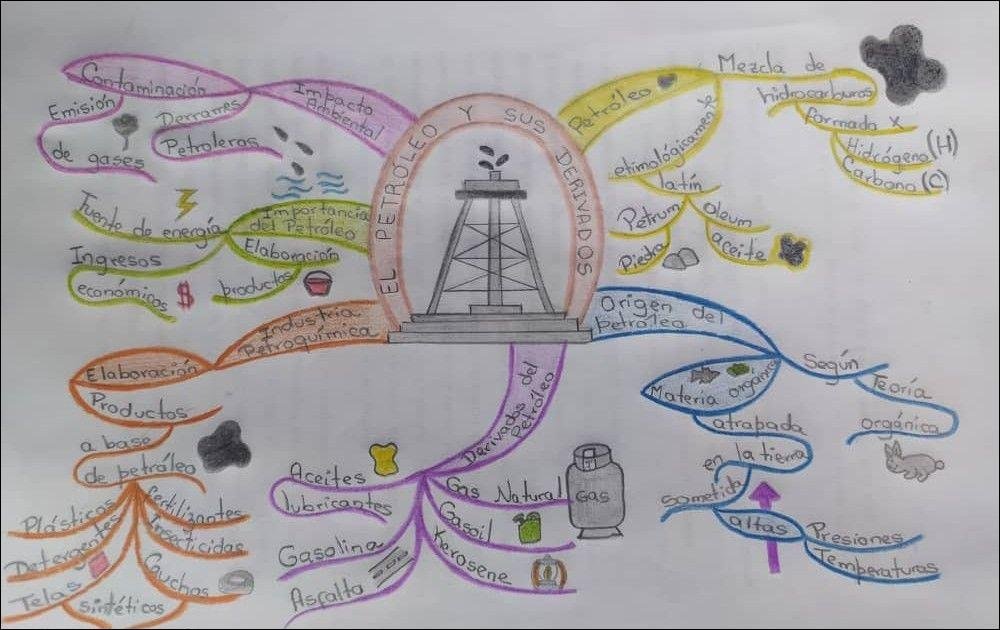 EL PETRÓLEO Y SUS DERIVADOS
Petróleo
Mezcla de
hidrocarburos
formada x
Hidrógeno (H)
Carbono (C)
etimológicamente
latín
Petrum
Piedra
Oleum
aceite
Origen del
Petróleo
Según
Teoría
orgánica
Materia orgánica
atrapada
en la tierra
sometida
altas
Presiones
Temperaturas
Derivados del
Petróleo
Gas Natural
GAS
Gasoil
Kerosene
Aceites
lubricantes
Gasolina
Asfalto
Industria
Petroquímica
Elaboración
Productos
a base
de petróleo
Plásticos
Detergentes
Telas
fertilizantes
Insecticidas
Cauchos
sintéticos
Importancia
del Petróleo
Fuente de energía
Ingresos
económicos
$
Elaboración
productos
Impacto
Ambiental
Contaminación
Emisión
de gases
Derrames
Petroleros